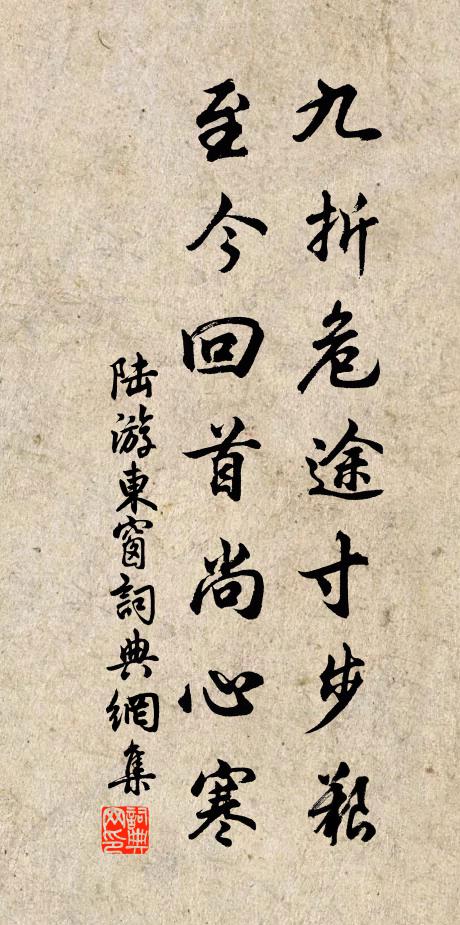 九折危途寸步艱
至今回首尚心寒
陆游東窗詞典網集
詞典網印